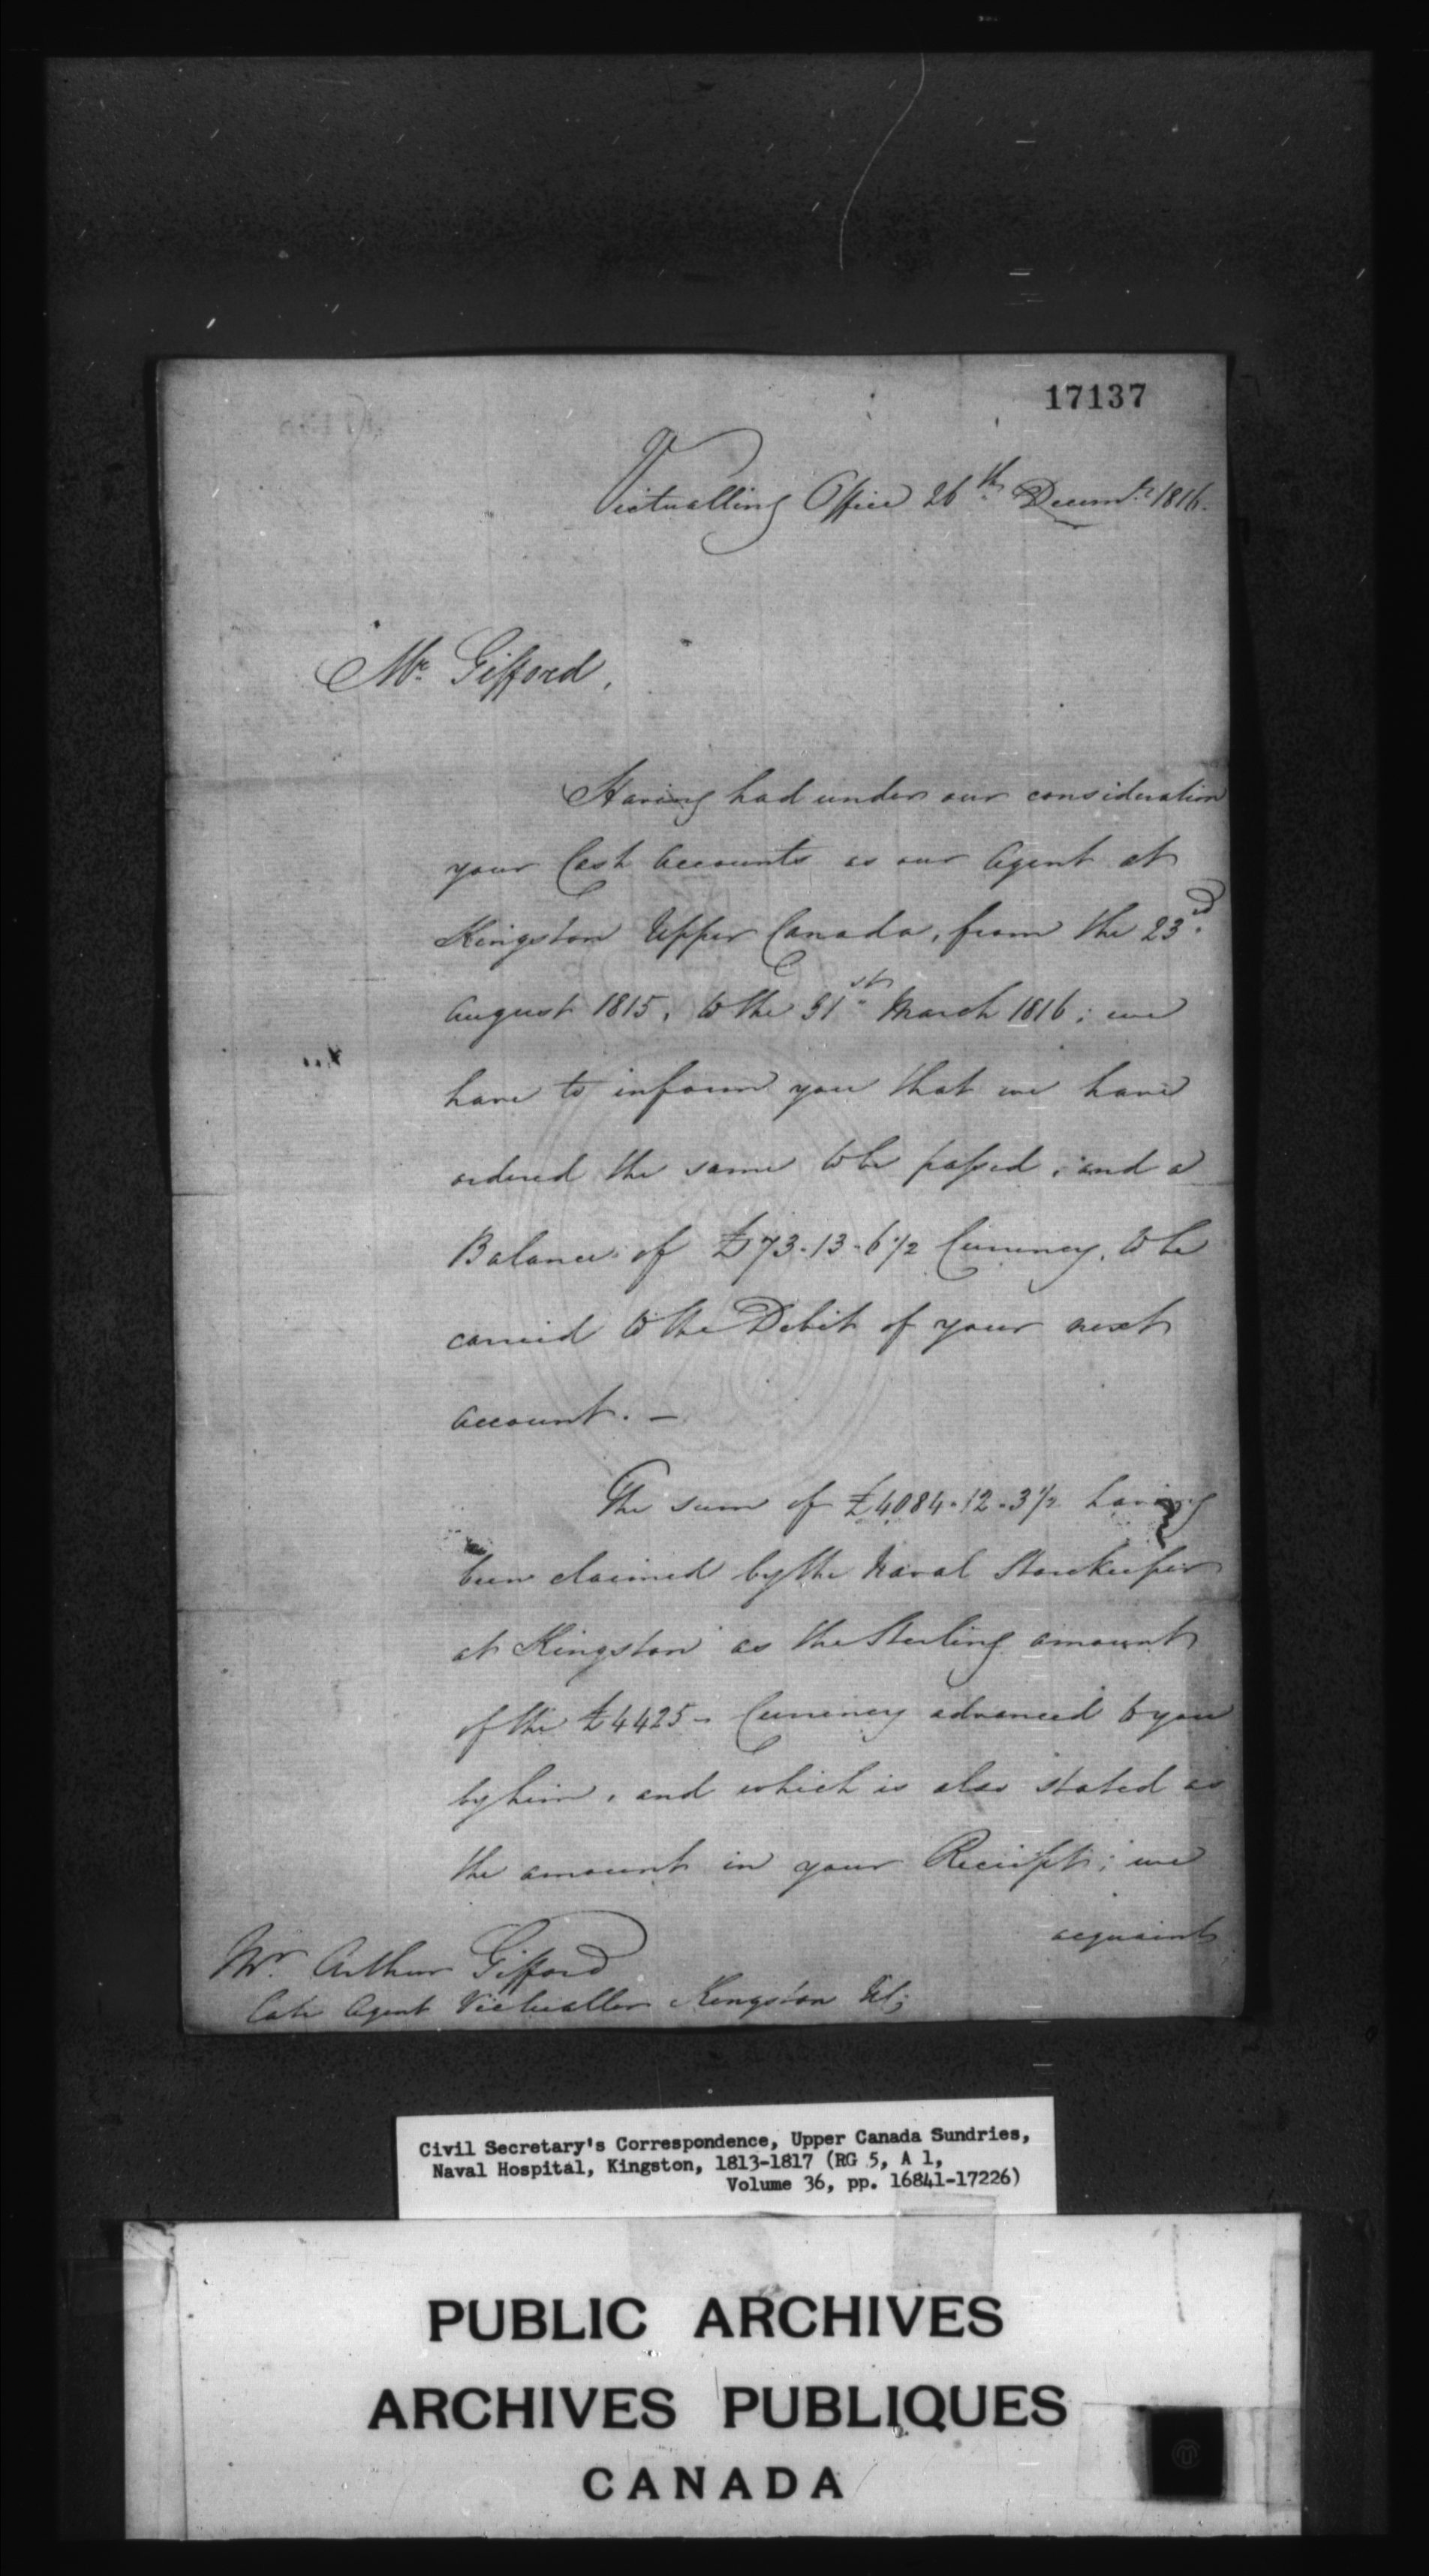 17137
Victualling Office 26th Decemr. 1816.
Mr. Gifford,
Having had under our consideration
your Cash Accounts as our Agent at
Kingston Upper Canada, from the 23rd.
August 1815, to the 31st. March 1816; we
have to inform you that we have
ordered the same to be passed, and a
Balance of £73-13-6½ Currency, to be
carried to the Debit of your next
Account. —
The sum of £4084-12-3½ having
been claimed by the Naval Storekeeper
at Kingston as the Sterling amount
of the £4425- Currency advanced to you
by him, and which is also stated as
the amount in your Receipt; we
acquaint
Mr. Arthur Gifford
late Agent Victualler Kingston
Civil Secretary's Correspondence, Upper Canada Sundries,
Naval Hospital, Kingston, 1813-1817 (RG 5, A 1,
Volume 36, pp. 16841-17226)
PUBLIC ARCHIVES
ARCHIVES PUBLIQUES
CANADA